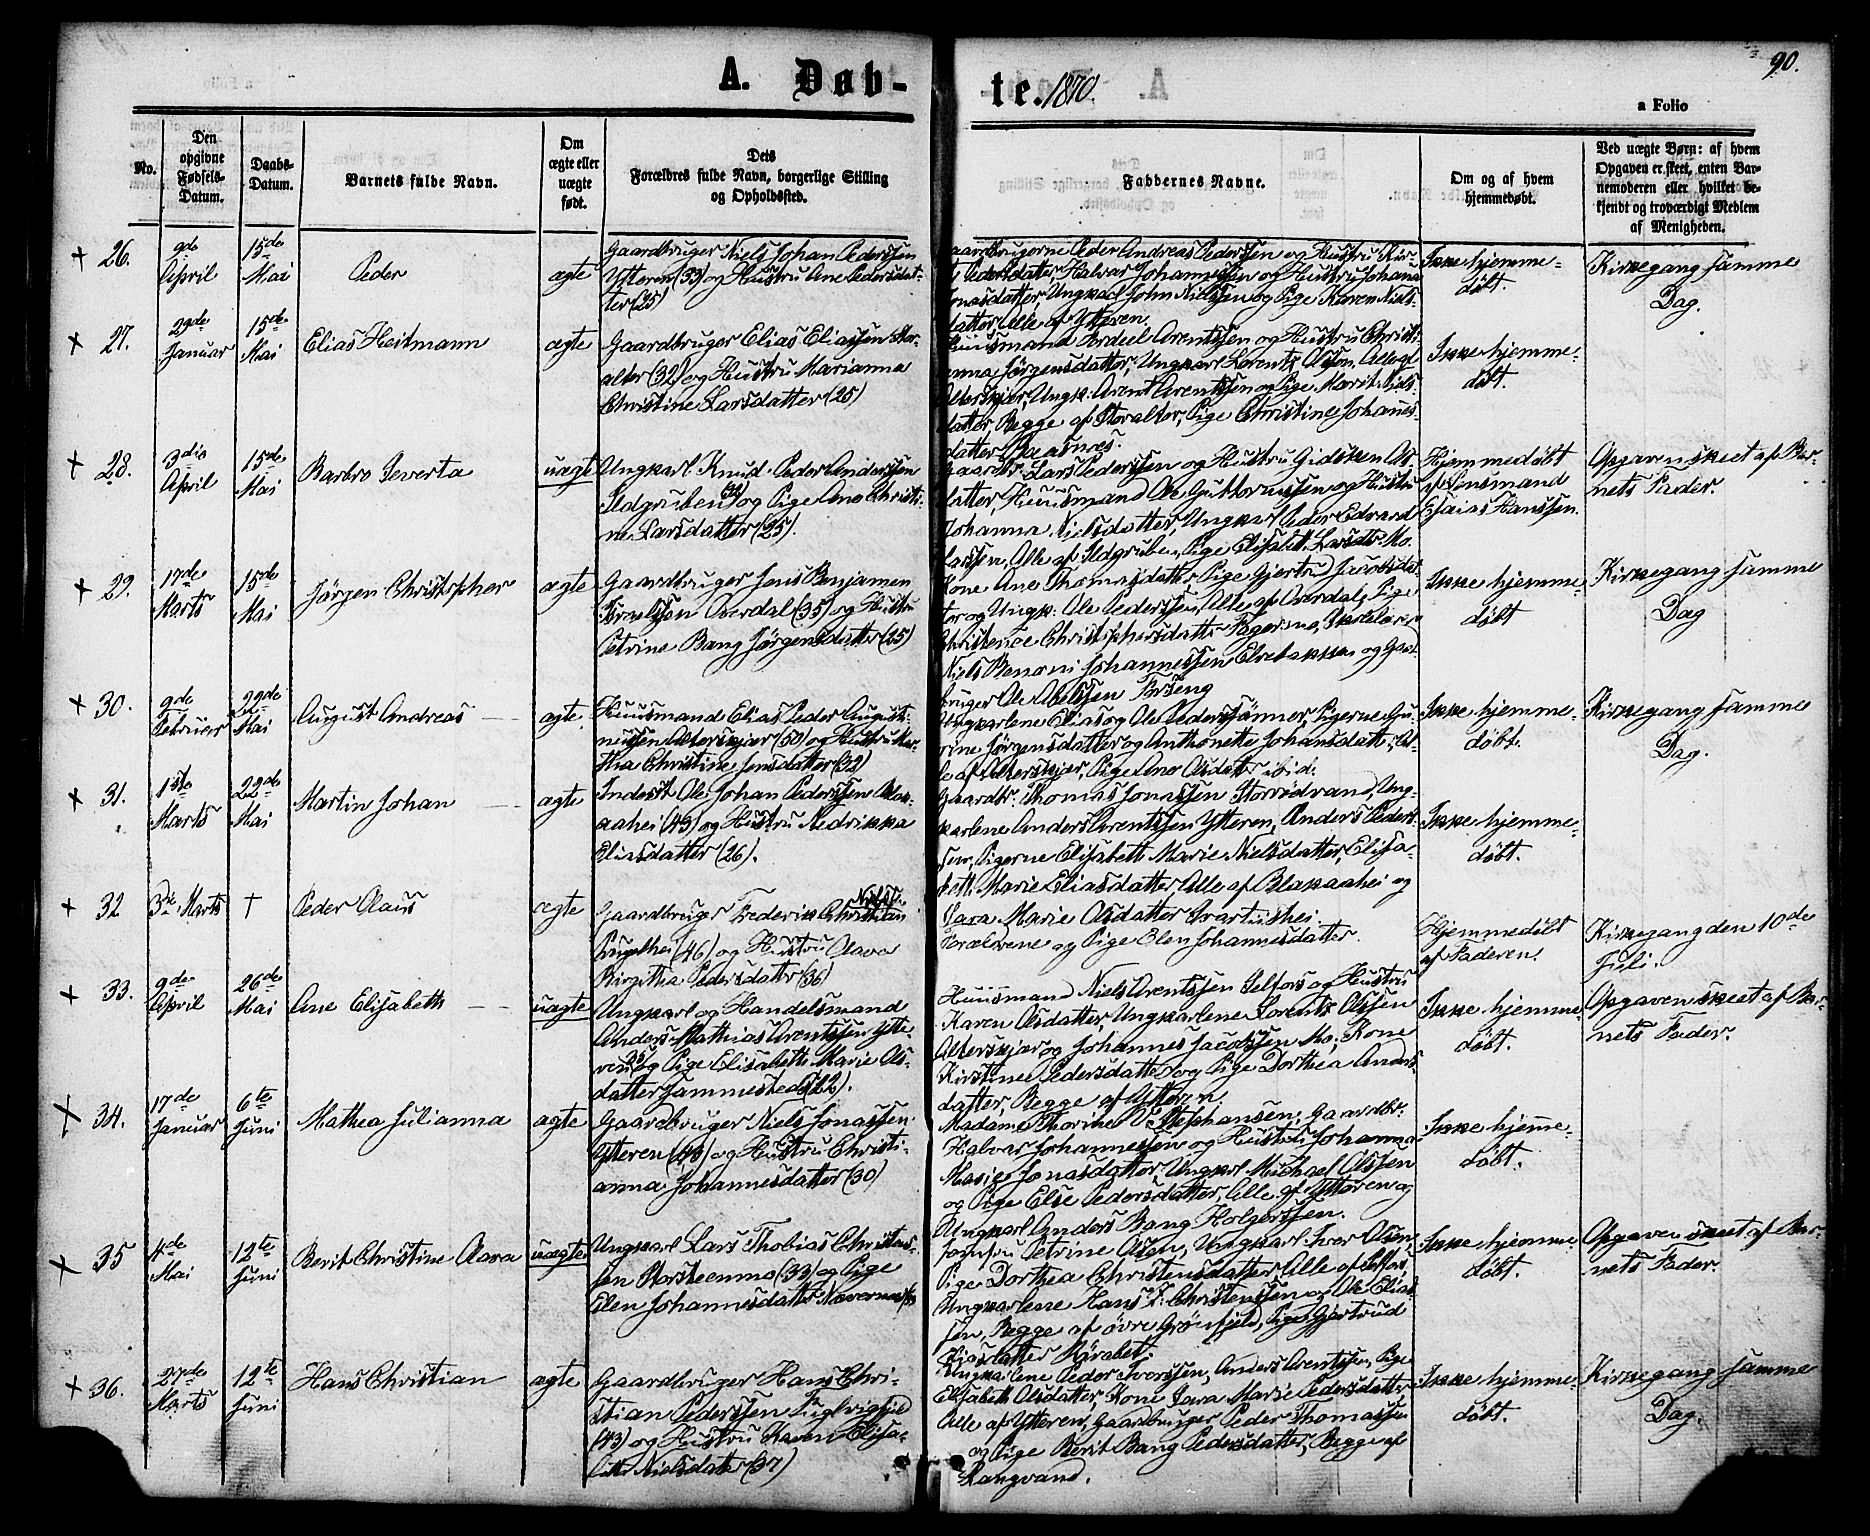 90.
A. Døb-
te. 1870.
a Folio
No.
Den
opgivne
Fødsels-
Datum.
Daabs-
Datum.
Barnets fulde Navn.
Om
ægte eller
uægte
født.
Dets
Forældres fulde Navn, borgerlige Stilling
og Opholdssted.
Faddernes Navne.
Om og af hvem
hjemmedøbt.
Ved uægte Børn: af hvem
Opgaven er skeet, enten Bar-
nemoderen eller hvilket be-
kjendt og troværdigt Medlem
af Menigheden.
+ 26.
9de
April
15de
Mai
Peder
ægte
Gaardbruger Niels Johan Pederssen
Ytteren (33) og Hustru Ane Pedersdat-
ter (35)
Gaardbrugerne Peder Andreas Pederssen og Hustru Kir-
Pedersdatter, Halvar Johannessen og Hustru Johana
Jonasdatter, Ungkarl John Nielssen og Pige Karen Niels-
datter, Alle af Ytteren.
Ikke hjemme-
døbt.
Kirkegang samme
Dag.
+ 27.
29de
Januar
15de
Mai
Elias Heitmann
ægte
Gaardbruger Elias Eliassen Stor-
alter (32) og Hustru Marianna
Christine Larsdatter (25)
Huusmand Fordeel Arentssen og Hustru Christi-
anna Jørgensdatter, Ungkarl Lorents Olssen, Alle af
Alterskjær, Ungk: Arent Arentssen og Pige Marit Niels-
datter, Begge af Storalter, Pige Christine Johanes-
datter Baasnes.
Ikke hjemme-
døbt.
+ 28.
3die
April
15de
Mai
Barbro Severta
uægte
Ungkarl Knud Peder Anderssen
Ildgruben og Pige Ane Christi-
ne Larsdatter (25).
Gaardbr: Lars Pederssen og Hustru Gidsken Ols-
datter, Huusmand Ole Guttormssen og Hustru
Johanna Nielsdatter, Ungkarl Peder Edvard
Larssen, Alle af Ildgruben, Pige Elisabeth Larsdtr Mo.
Hjemmedøbt
af Lensmand
Esaias Hanssen.
Opgaven skeet af Bar-
nets Fader.
+ 29.
17de
Marts
15de
Mai
Jørgen Christopher
ægte
Gaardbruger Jens Benjamen
Israelssen Overdal (35) og Hustru
Petrine Bang Jørgensdatter (25)
Kone Ane Thomasdatter, Pige Gjertru Jacobsdat-
ter og Ungk: Ole Pederssen, Alle af Overdal, Pige
Christence Christophersdatter Fagermo, Skolelærer
Niels Benoni Johannessen Elvebakken og Gaard-
bruger Ole Abelssen Forseng
Ikke hjemme-
døbt
Kirkegang samme
Dag
+ 30.
9de
Februar
22de
Mai
August Andreas —
ægte
Huusmand Elias Peder August-
inussen Alterskjær (50) og Hustru Mar-
tha Christine Jensdatter (32)
Ungkarlene Elias og Ole Pederssønner, Pigerne Gu-
rine Jørgensdatter og Anthonette Johansdatter, Al-
le af Alterskjær, Pige Ane Olsdatter ibid.
Ikke hjemme-
døbt.
Kirkegang samme
Dag.
+ 31.
1ste
Marts
22de
Mai
Martin Johan —
ægte
Inderst Ole Johan Pederssen Blak-
aahei (43) og Hustru Nedrikka
Eliasdatter (26).
Gaardbr: Thomas Jonassen Storrødvand, Ung-
karlene Anders Arentssen Ytteren, Anders Peders-
sen, Pigerne Elisabeth Marie Nielsdatter, Elisa-
beth Marie Eliasdatter, Alle af Blakaahei og
Sara Marie Olsdatter Svartishei.
Ikke hjemme-
døbt.
+ 32
3die Marts
†
Peder Claus
ægte
Gaardbruger Frederik Christian Nielssen
(46) og Hustru Clara
Birgitha Pedersdatter (36)
Forældrene og Pige Elen Johannesdatter.
Hjemmedøbt
af Faderen.
Kirkegang den 10de
Juli.
+ 33.
9de
April
26de
Mai
Ane Elisabeth —
uægte
Ungkarl og Handelsmand
Anders Mathias Arentssen Ytte-
ren (35) og Pige Elisabeth Marie Ols-
datter sammesteds (22).
Huusmand Niels Arentssen Selfors og Hustru
Karen Olsdatter, Ungkarlene Lorents Olssen
Alterskjær og Johannes Jacobssen Mo, Kone
Kirstine Pedersdatter og Pige Dorthea Anders-
datter, Begge af Ytteren.
Ikke hjemme-
døbt.
Opgaven skeet af Bar-
nets Fader.
+ 34.
17de
Januar
6te
Juni
Mathea Julianna
ægte
Gaardbruger Niels Jonassen
Ytteren (46) og Hustru Christi-
anna Johannesdatter (30)
Madame Thorine V. Stephansen, Gaardbr.
Halvar Johannessen og Hustru Johanna
Marie Jonasdatter, Ungkarl Michael Olssen
og Pige Else Pedersdatter, Alle af Ytteren og
Ungkarl Anders Bang Holgerssen.
Ikke hjemme-
døbt.
+ 35
4de
Mai
12te
Juni
Berit Christine Clara
uægte
Ungkarl Lars Thobias Christens-
sen Storsteenmo (33) og Pige
Elen Johannesdatter Nævernes
Jomfru Petrine Olsen, Ungkarl Iver Olsen,
Pige Dorthea Christensdatter, Alle af Selfors,
Ungkarlene Hans J: Christenssen og Ole Elias-
sen, Begge af øvre Grønfjeld, Pige Gjertrud
Eliasdatter Røvabet.
Ikke hjemme-
døbt.
Opgaven skeet af Bar-
nets Fader.
+ 36.
27de
Marts
12te
Juni
Hans Christian
ægte
Gaardbruger Hans Chri-
stian Pederssen Fuglvigfjeld
(43) og Hustru Karen Elisa-
beth Nielsdatter (37)
Ungkarlene Peder Iverssen, Anders Arentssen, Pige
Elisabeth Olsdatter, Kone Sara Marie Pedersdatter,
Alle af Ytteren, Gaardbruger Peder Thomassen
og Pige Berit Bang Pedersdatter, Begge af
Langvand.
Ikke hjemme-
døbt.
Kirkegang samme
Dag.